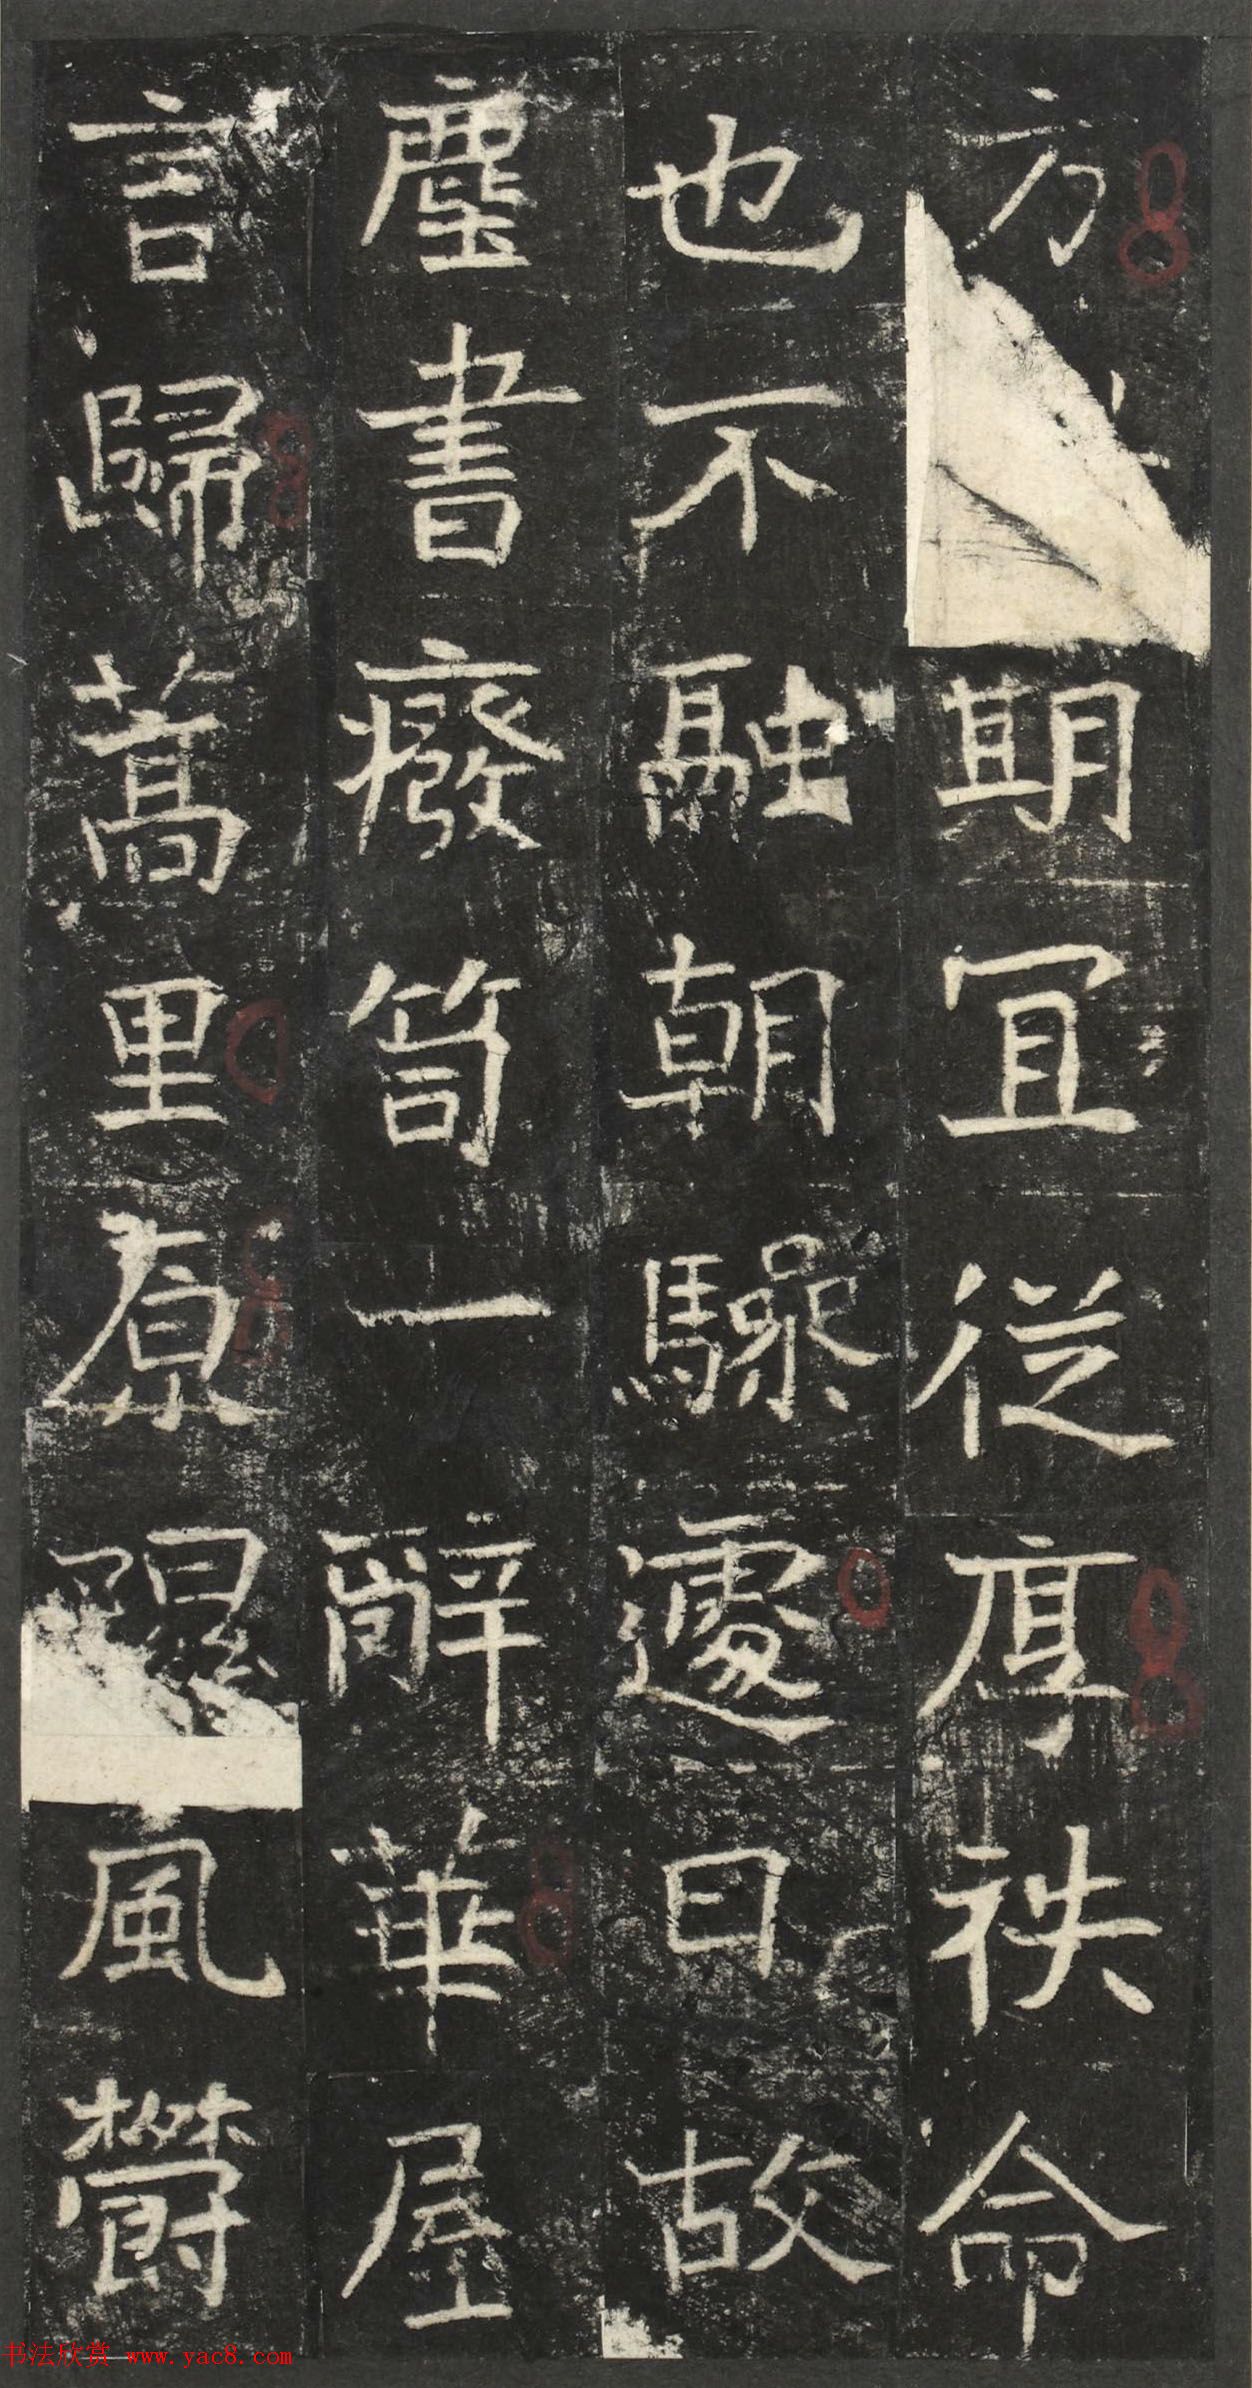 方期宜從厚秩命
也不融朝驂遽日故
塵書廢笥一辭華屋
言歸蒿里原隰風欝
书法欣赏 www.yac8.com